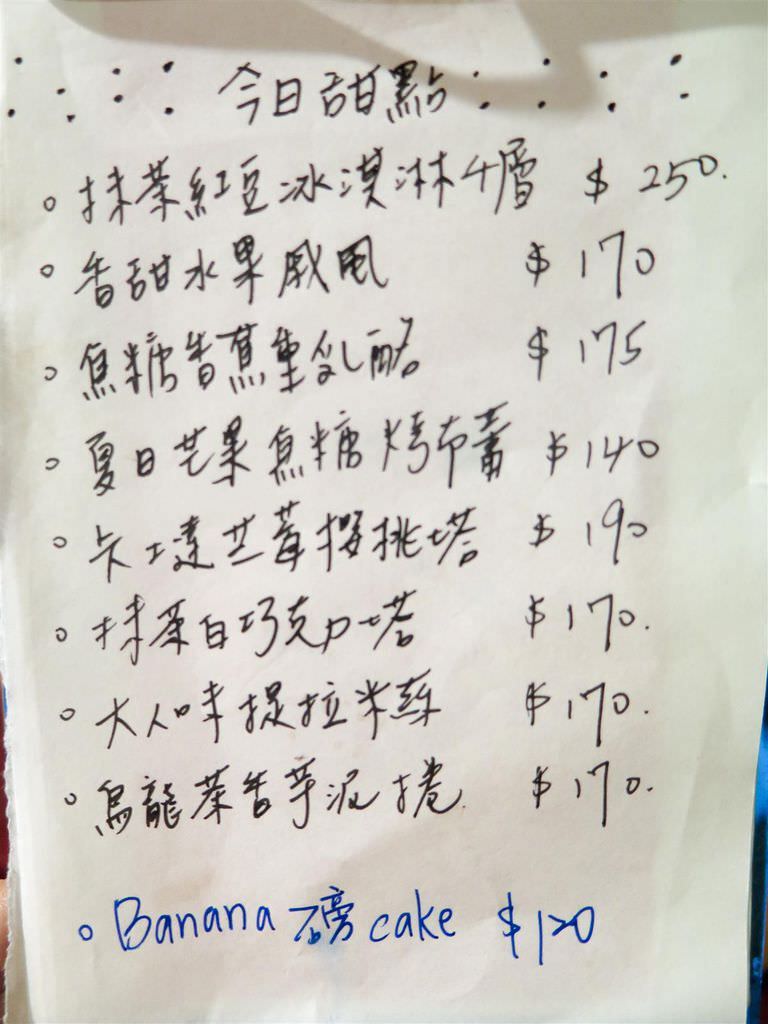 今日甜點
抹茶紅豆冰淇淋千層 $ 250.
香甜水果戚風 $ 170
焦糖香蕉重乳酪 $ 175
夏日芒果焦糖烤布蕾 $ 140
卡士達草莓櫻桃塔 $ 190
抹茶白巧克力塔 $ 170.
大人味提拉米蘇 $ 170.
烏龍茶香芋泥捲 $ 170.
Banana 磅 cake $ 120